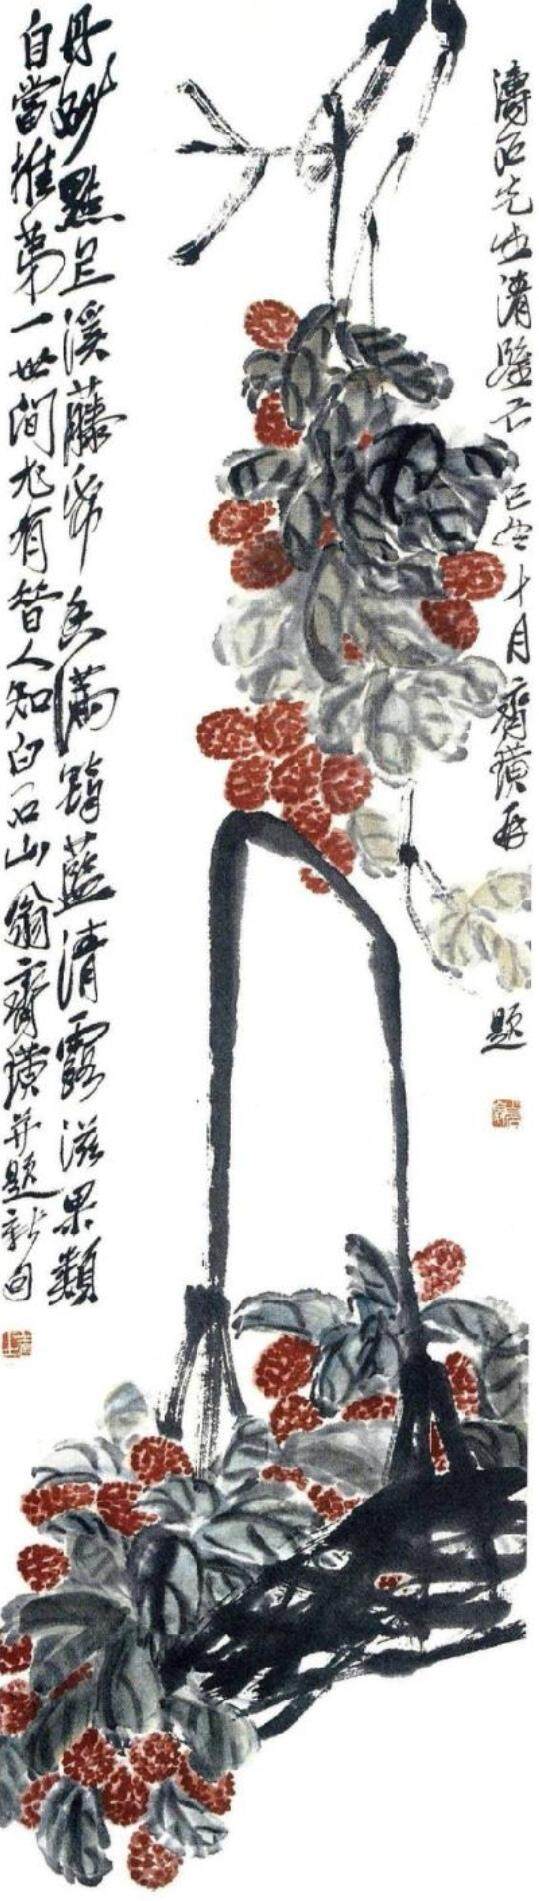 濤石先生清鑒十月齊璜再題
丹砂點上溪藤帋香滿筠藍清露滋果類
自當推第一世間尤有昔人知白石山翁齊璜并題新句